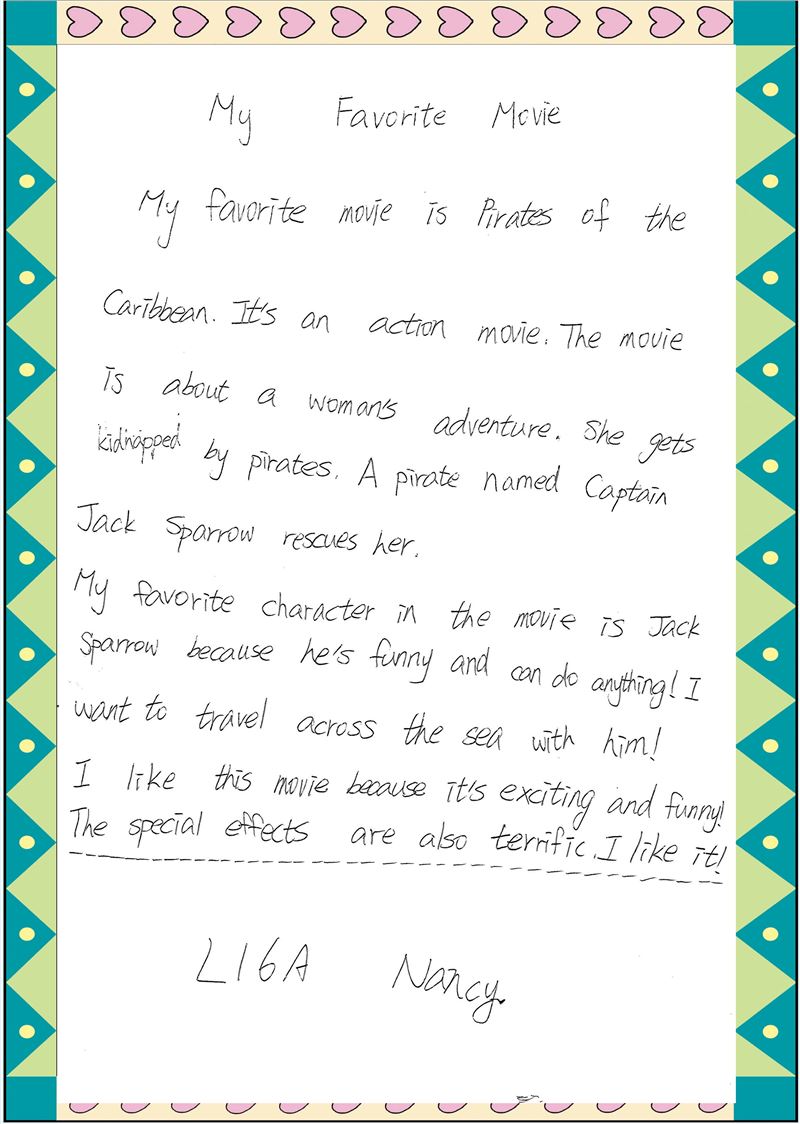 My Favorite Movie
My favorite movie is Pirates of the
Caribbean. It's an action movie. The movie
is about a woman's adventure. She gets
kidnapped by pirates. A pirate named Captain
Jack Sparrow rescues her.
My favorite character in the movie is Jack
Sparrow because he's funny and can do anything! I
want to travel across the sea with him!
I like this movie because it's exciting and funny!
The special effects are also terrific. I like it!
L16A Nancy